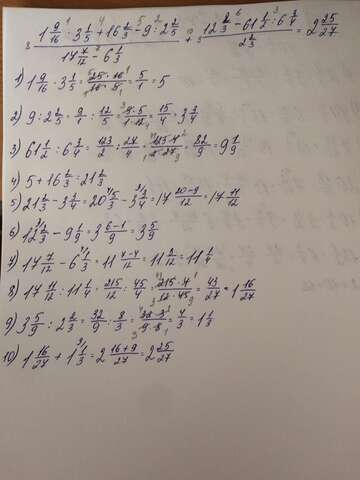 (1 9/16 · 3 1/5 + 16 2/3 − 9 : 2 2/5) / (17 7/12 − 6 1/3) + (12 2/3 − 61 1/2 : 6 3/4) / (2 2/3) = 2 25/27
1) 1 9/16 · 3 1/5 = (25 · 16)/(16 · 5) = 5/1 = 5
2) 9 : 2 2/5 = 9/1 : 12/5 = (9 · 5)/(1 · 12) = 15/4 = 3 3/4
3) 61 1/2 : 6 3/4 = 123/2 : 27/4 = (123 · 4)/(2 · 27) = 82/9 = 9 1/9
4) 5 + 16 2/3 = 21 2/3
5) 21 2/3 − 3 3/4 = 20 5/3 − 3 3/4 = 17 (20−9)/12 = 17 11/12
6) 12 2/3 − 9 1/9 = 3 (6−1)/9 = 3 5/9
7) 17 7/12 − 6 1/3 = 11 (7−4)/12 = 11 3/12 = 11 1/4
8) 17 11/12 : 11 1/4 = 215/12 : 45/4 = (215 · 4)/(12 · 45) = 43/27 = 1 16/27
9) 3 5/9 : 2 2/3 = 32/9 : 8/3 = (32 · 3)/(9 · 8) = 4/3 = 1 1/3
10) 1 16/27 + 1 1/3 = 2 (16+9)/27 = 2 25/27